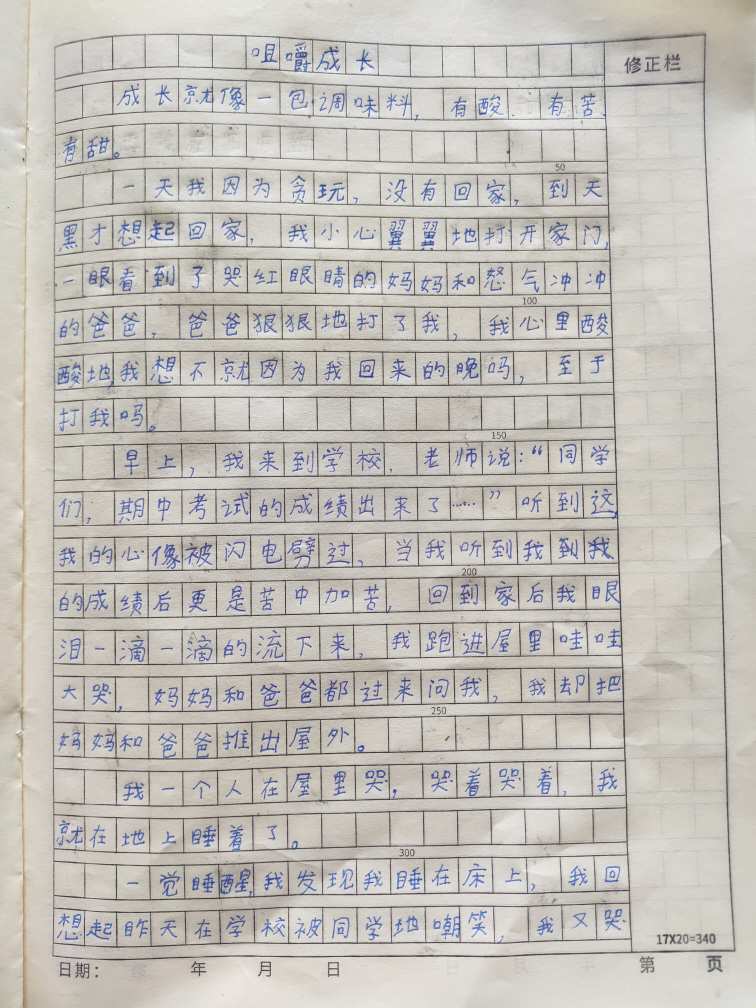 咀嚼成长
修正栏
成长就像一包调味料，有酸、有苦、
有甜。
50
一天我因为贪玩，没有回家，到天
黑才想起回家，我小心翼翼地打开家门，
一眼看到了哭红眼睛的妈妈和怒气冲冲
100
的爸爸，爸爸狠狠地打了我，我心里酸
酸地，我想不就因为我回来的晚吗，至于
打我吗。
150
早上，我来到学校，老师说：“同学
们，期中考试的成绩出来了……”听到这，
我的心像被闪电劈过，当我听到我到我
200
的成绩后更是苦中加苦，回到家后我眼
泪一滴一滴的流下来，我跑进屋里哇哇
大哭，妈妈和爸爸都过来问我，我却把
250
妈妈和爸爸推出屋外。
我一个人在屋里哭，哭着哭着，我
就在地上睡着了。
300
一觉睡醒，我发现我睡在床上，我回
想起昨天在学校被同学地嘲笑，我又哭
17X20=340
日期： 年 月 日 第 页